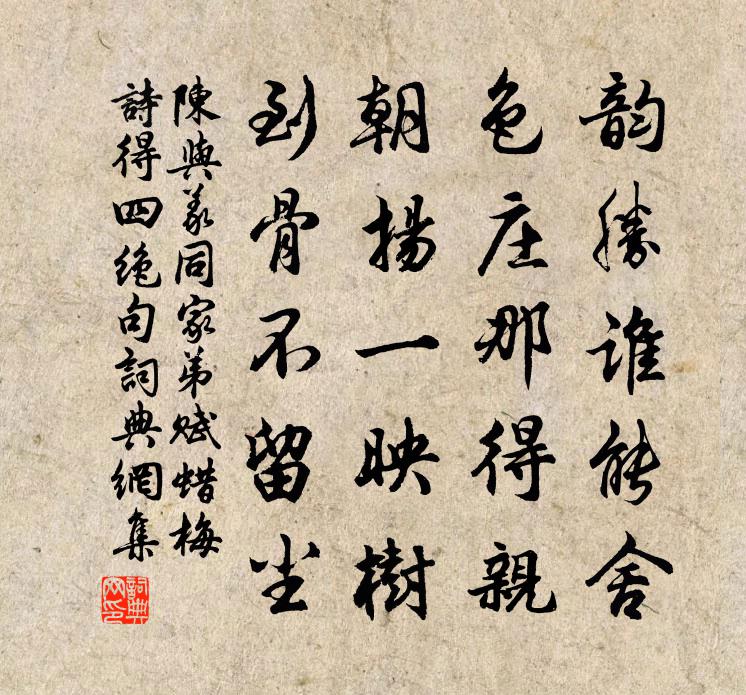 韵勝谁能舍
色庄那得親
朝揚一映樹
到骨不留尘
陳與義同家弟赋蜡梅
詩得四绝句詞典網集
詞典